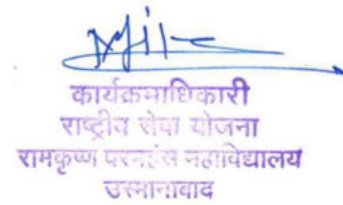 कार्यक्रमाधिकारी
राष्ट्रीय सेवा योजना
रामकृष्ण परमहंस महाविद्यालय
उस्मानाबाद